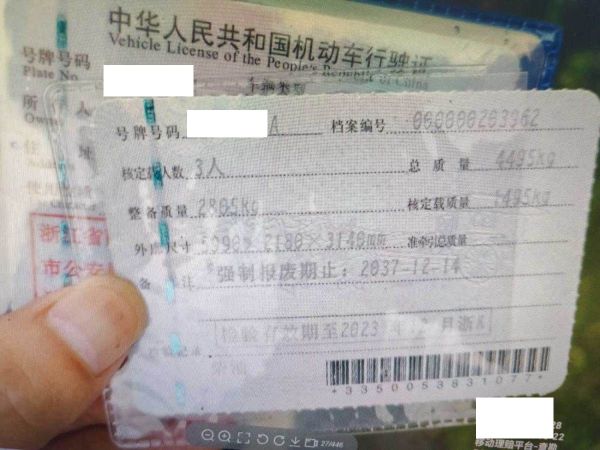 中华人民共和国机动车行驶证
Vehicle License of the People's Republic of China
号牌号码
Plate No.
车辆类型
所 人
Owner
住 址
号牌号码 A 档案编号
核定载人数 3人 总质量 4495Kg
整备质量 2805Kg 核定载质量 1495Kg
外廓尺寸 5998×2180×3140mm 准牵引总质量
备 注 强制报废期止：2037-12-14
检验有效期至2023年12月浙K
检验记录
柴油
浙江省
市公安
*3350053831077*
27/446
28
22
移动理赔平台-查勘